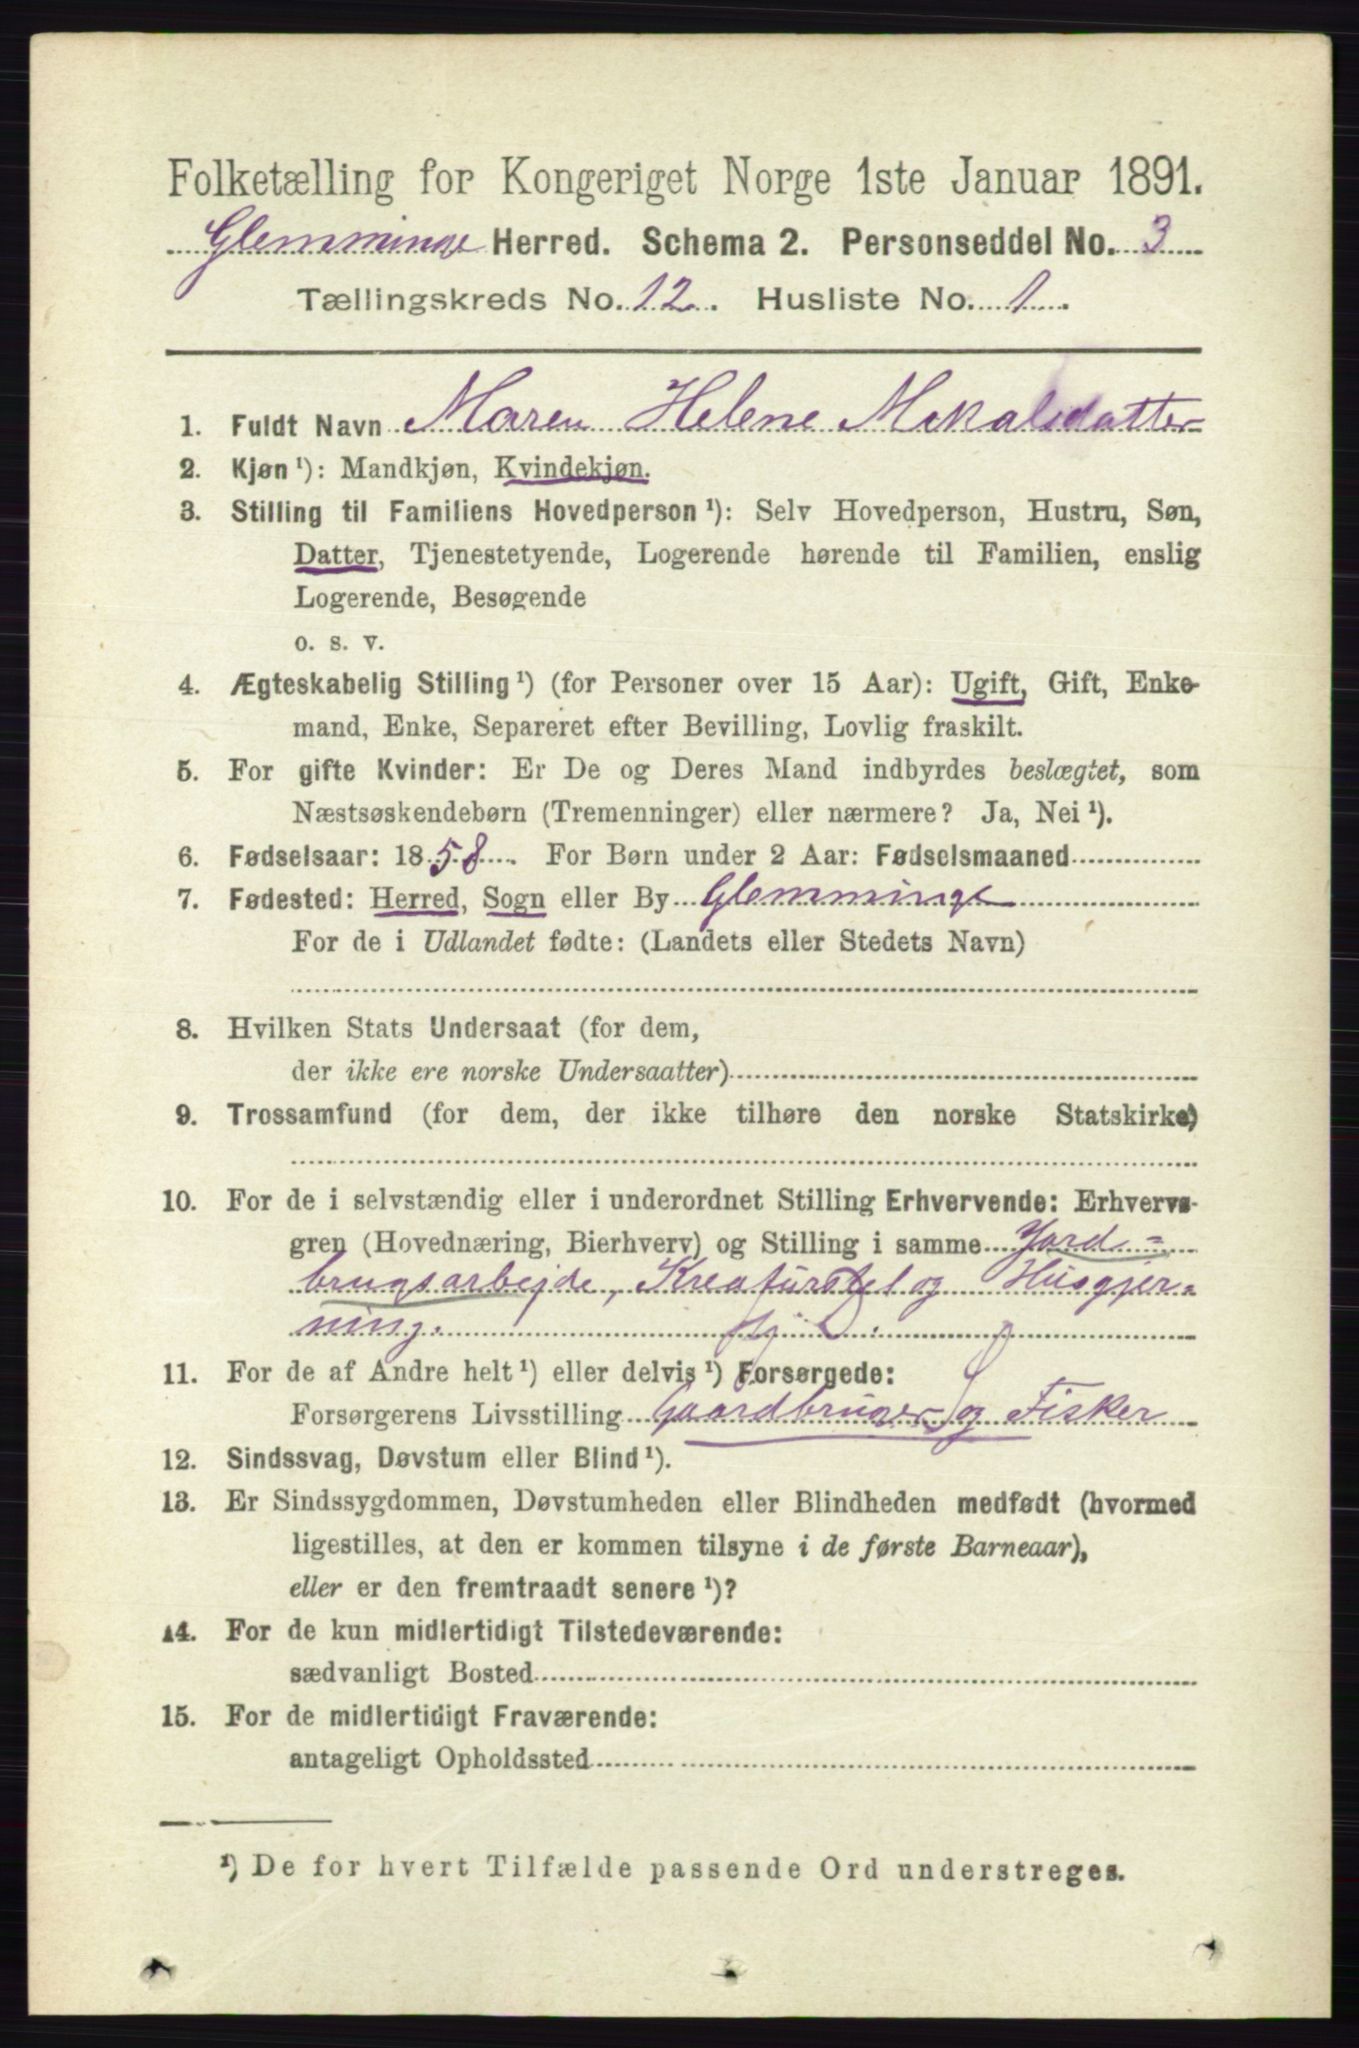 Folketælling for Kongeriget Norge 1ste Januar 1891.
Glemminge Herred. Schema 2. Personseddel No. 3
Tællingskreds No. 12. Husliste No. 1.
1. Fuldt Navn Maren Helene Mikalsdatter
2. Kjøn ¹): Mandkjøn, Kvindekjøn.
3. Stilling til Familiens Hovedperson ¹): Selv Hovedperson, Hustru, Søn,
Datter, Tjenestetyende, Logerende hørende til Familien, enslig
Logerende, Besøgende
o. s. v.
4. Ægteskabelig Stilling ¹) (for Personer over 15 Aar): Ugift, Gift, Enke-
mand, Enke, Separeret efter Bevilling, Lovlig fraskilt.
5. For gifte Kvinder: Er De og Deres Mand indbyrdes beslægtet, som
Næstsøskendebørn (Tremenninger) eller nærmere? Ja, Nei ¹).
6. Fødselsaar: 1858. For Børn under 2 Aar: Fødselsmaaned
7. Fødested: Herred, Sogn eller By Glemminge
For de i Udlandet fødte: (Landets eller Stedets Navn)
8. Hvilken Stats Undersaat (for dem,
der ikke ere norske Undersaatter)
9. Trossamfund (for dem, der ikke tilhøre den norske Statskirke)
10. For de i selvstændig eller i underordnet Stilling Erhvervende: Erhvervs-
gren (Hovednæring, Bierhverv) og Stilling i samme Jord-
brugsarbejde, Kreaturstel og Husgjer-
ning.
11. For de af Andre helt ¹) eller delvis ¹) Forsørgede:
Forsørgerens Livsstilling Gaardbruger og Fisker
12. Sindssvag, Døvstum eller Blind ¹).
13. Er Sindssygdommen, Døvstumheden eller Blindheden medfødt (hvormed
ligestilles, at den er kommen tilsyne i de første Barneaar),
eller er den fremtraadt senere ¹)?
14. For de kun midlertidigt Tilstedeværende:
sædvanligt Bosted
15. For de midlertidigt Fraværende:
antageligt Opholdssted
¹) De for hvert Tilfælde passende Ord understreges.